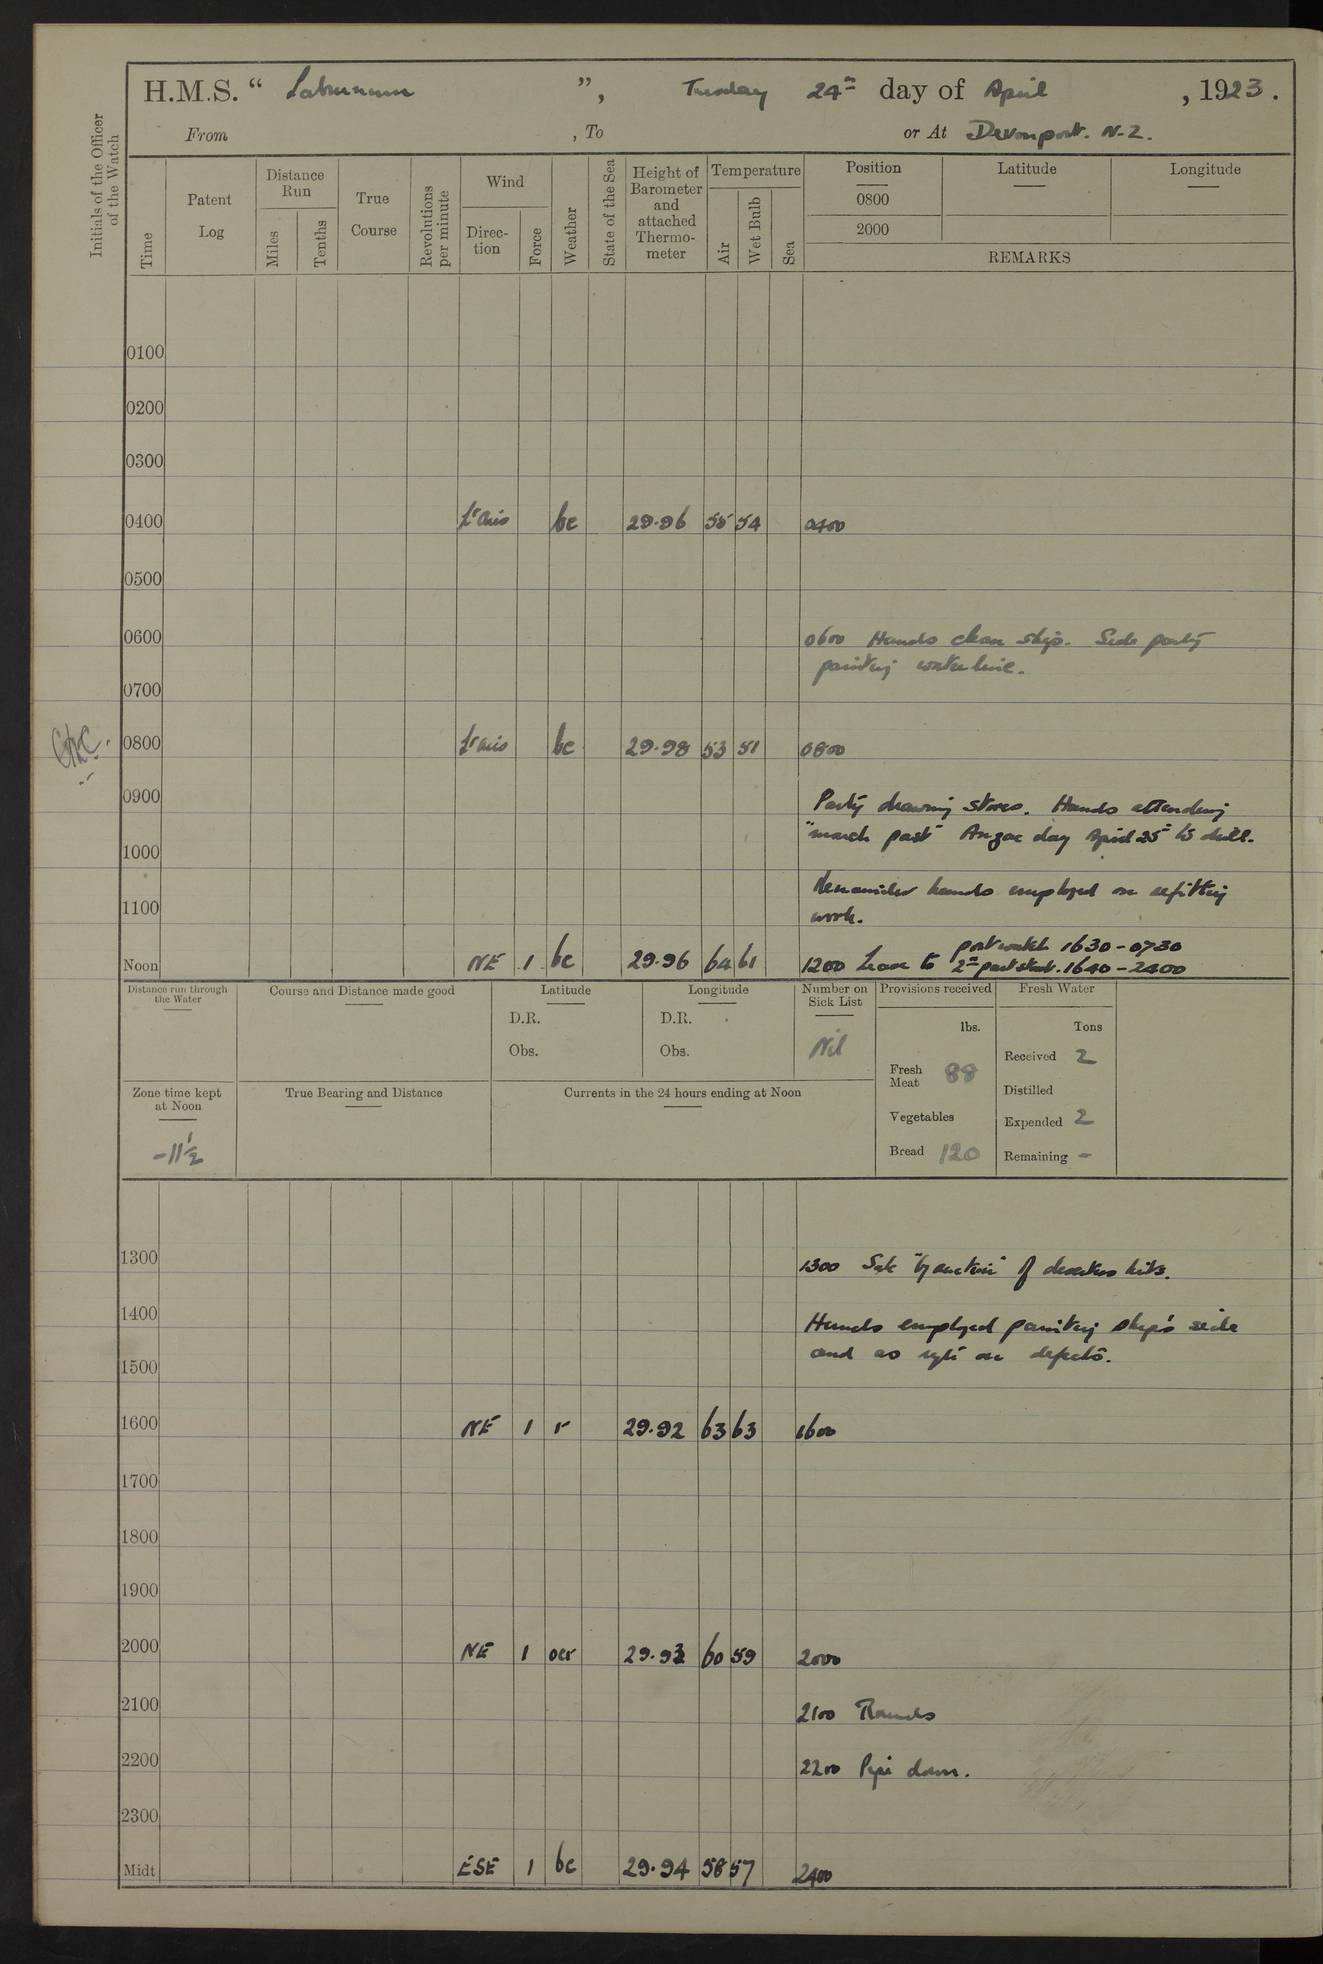 H.M.S. “ Laburnum ”, Tuesday 24th day of April , 1923.
From , To or At Devonport. N.Z.
Initials of the Officer of the Watch
Time
Patent Log
Distance Run
Miles
Tenths
True Course
Revolutions per minute
Wind
Direc-tion
Force
Weather
State of the Sea
Height of Barometer and attached Thermo-meter
Temperature
Air
Wet Bulb
Sea
Position
0800
2000
Latitude
Longitude
REMARKS
0100
0200
0300
0400 Lt airs bc 29.96 55 54 0400
0500
0600 0600 Hands clean ship. Side party
painting waterline.
0700
0800 Lt airs bc 29.98 53 51 0800
0900 Party drawing stores. Hands attending
"march past" Anzac day April 25th to drill.
1000
Remainder hands employed on refitting
1100 work.
port watch 1630-0730
Noon NE 1 bc 29.96 64 61 1200 Leave to 2nd part stbd. 1640-2400
Distance run through the Water
Course and Distance made good
Latitude
D.R.
Obs.
Longitude
D.R.
Obs.
Number on Sick List
Nil
Provisions received
lbs.
Fresh Meat 88
Vegetables
Bread 120
Fresh Water
Tons
Received 2
Distilled
Expended 2
Remaining -
Zone time kept at Noon
-11½
True Bearing and Distance
Currents in the 24 hours ending at Noon
1300 1300 Sale "by auction" of deserters kits.
1400 Hands employed painting ship's side
and as reqte on defects.
1500
1600 NE 1 r 29.92 63 63 1600
1700
1800
1900
2000 NE 1 ocr 29.93 60 59 2000
2100 2100 Rounds
2200 2200 Pipe down.
2300
Midt ESE 1 bc 29.94 58 57 2400